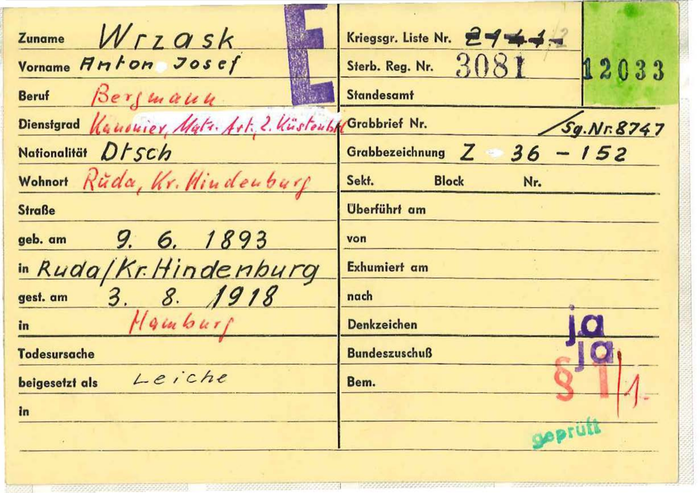 E
Zuname Wrzask
Vorname Anton Josef
Beruf Bergmann
Dienstgrad Kanonier, Matr. Art. 2. Küstenbtl
Nationalität Dtsch
Wohnort Ruda, Kr. Hindenburg
Straße
geb. am 9. 6. 1893
in Ruda/Kr. Hindenburg
gest. am 3. 8. 1918
in Hamburg
Todesursache
beigesetzt als Leiche
in
Kriegsgr. Liste Nr.
Sterb. Reg. Nr. 3081 12033
Standesamt
Grabbrief Nr. /Sg. Nr. 8747
Grabbezeichnung Z 36 - 152
Sekt. Block Nr.
Überführt am
von
Exhumiert am
nach
Denkzeichen ja
Bundeszuschuß ja
Bem. § 1/1.
geprüft